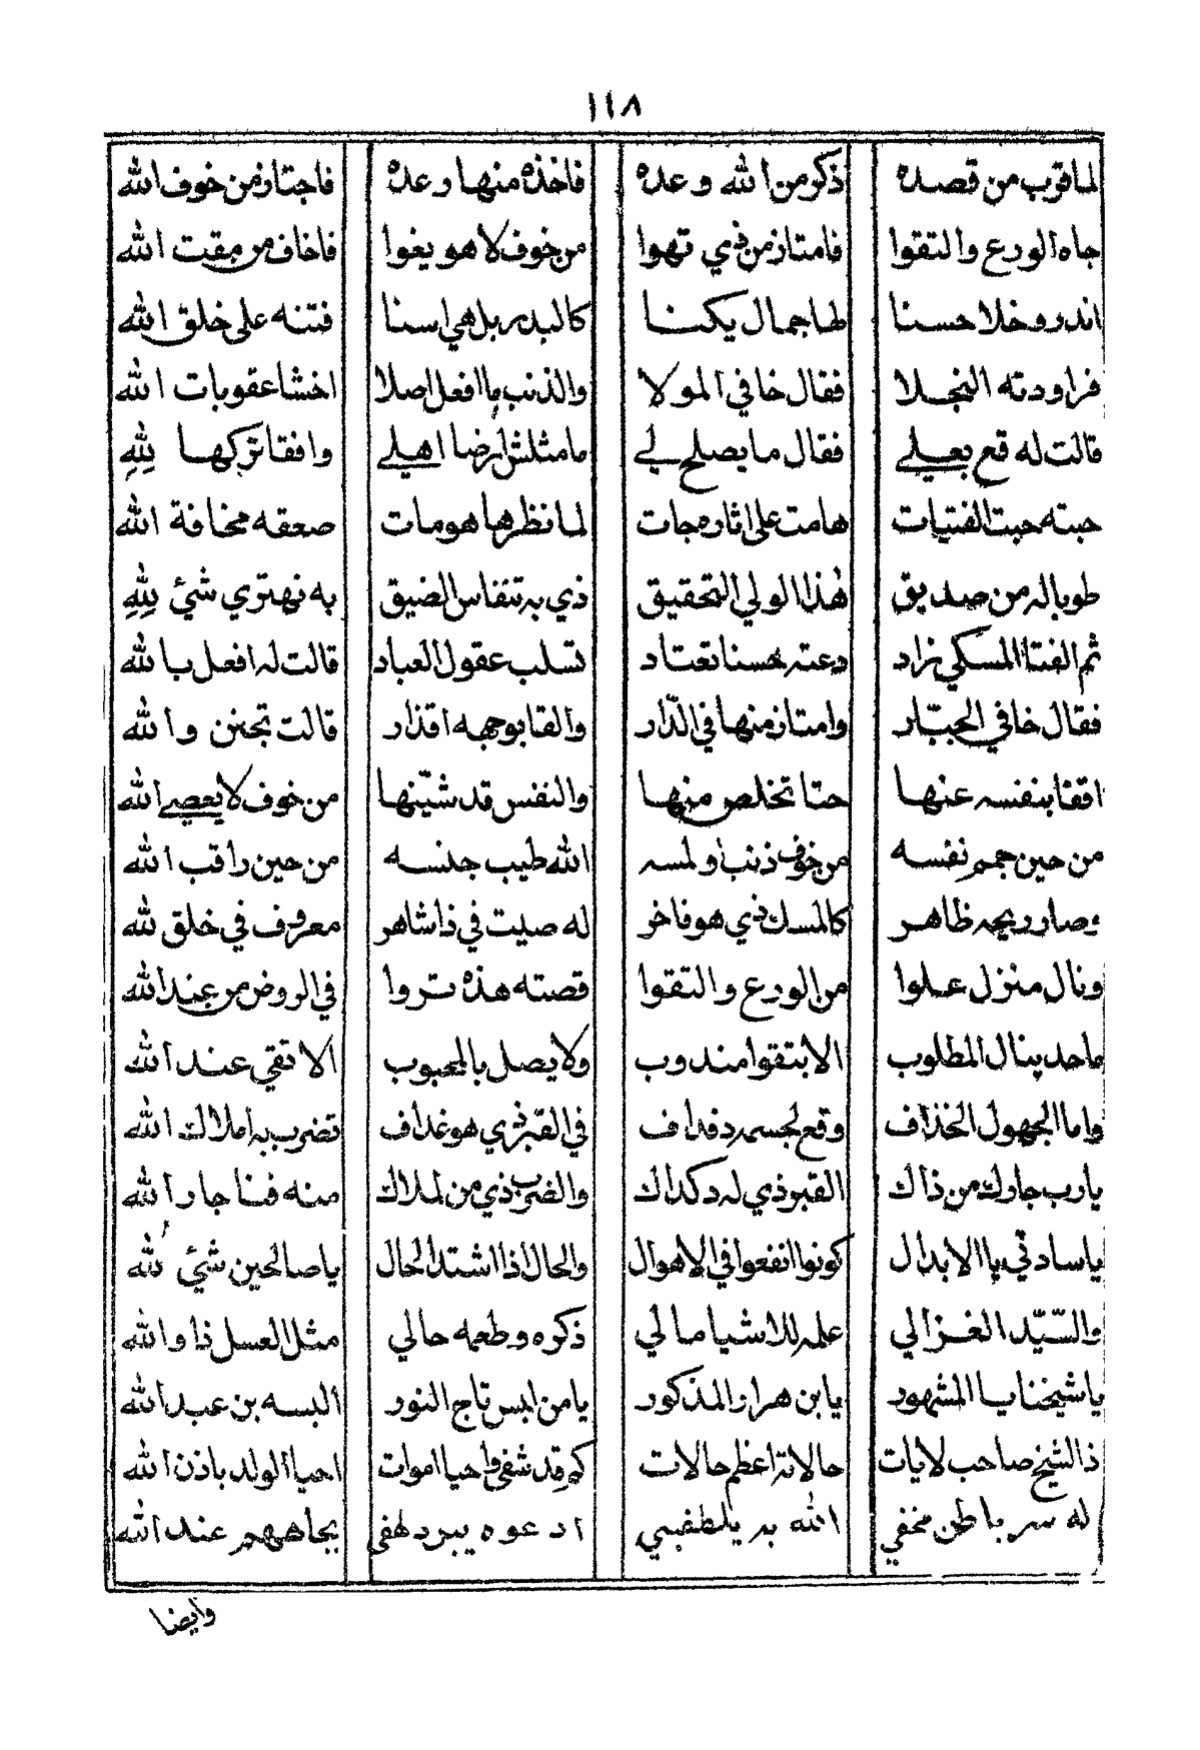 ١١٨
لما قرب من قصده ذكر من الله وعده فاخذه منها وعده فاجتاز من خوف الله
جاه الورع والتقوا فامتاز من ذي تهوا من خوف لا هو يغوا فاخاف من مقت الله
اندر وخلا حسنا لها جمال يكنا كالبدر بل هي اسنا فتنه على خلق الله
فراودته النجلا فقال خافي المولا والذنب ما افعل اصلا اخشا عقوبات الله
قالت له قع بعلي فقال ما يصلح لي ما مثلش ارضا اهلي وافقا تركها لله
حبته حبت الفتيات هامت على اثاره جات لما نظرها هو مات صعقه مخافة الله
طوبا له من صديق هذا الولي التحقيق ذي به تنفاس الضيق به نهتري شئ لله
ثم الفتا المسكي زاد دعته حسنا تعتاد تسلب عقول العباد قالت له افعل بالله
فقال خافي الجبّار وامتاز منها في الدّار والقا بوجهه اقذار قالت تجنن والله
اقفا بنفسه عنها حتا تخلص منها والنفس قد شيّنها من خوف لا يعصي الله
من حين جمم نفسه من خوف ذنب اولمسه الله طيب جنسه من حين راقب الله
وصار ريحه ظاهر كالمسك ذي هو فاخر له صيت في ذا شاهر معروف في خلق الله
ونال منزل علوا من الورع والتقوا قصته هذه تروا في الروض من عند الله
ما حد ينال المطلوب الا بتقوا مندوب ولا يصل بالمحبوب الا تقي عند الله
واما الجهول الخذاف وقع لجسمه دفداف في القبر ذي هو غداف تضرب به املاك الله
يارب جاورك من ذاك القبر ذي له دكداك والضرب ذي من لملاك منه فنا جار الله
يا سادتي يا الابدال كونوا انفعوا في الاهوال والحال اذا اشتد الحال يا صالحين شئ لله
والسّيّد الغزالي علمه للاشيا مالي ذكره وطعمه حالي مثل العسل ذا والله
يا شيخنا يا المشهور يا بن هرار المذكور يا من لبس تاج النور البسه بن عبد الله
ذا الشيخ صاحب لايات حالاته اعظم حالات كم قد شفي واحيا اموات احيا الولد باذن الله
له سر باطن مخفي الله به يلطفبي ادعوه يبرد لهفي بجاههم عند الله
وايضا